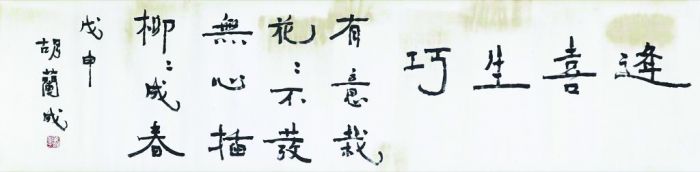 逢喜生巧
有意栽
花〻不發
無心插
柳〻成春
戊申
胡蘭成